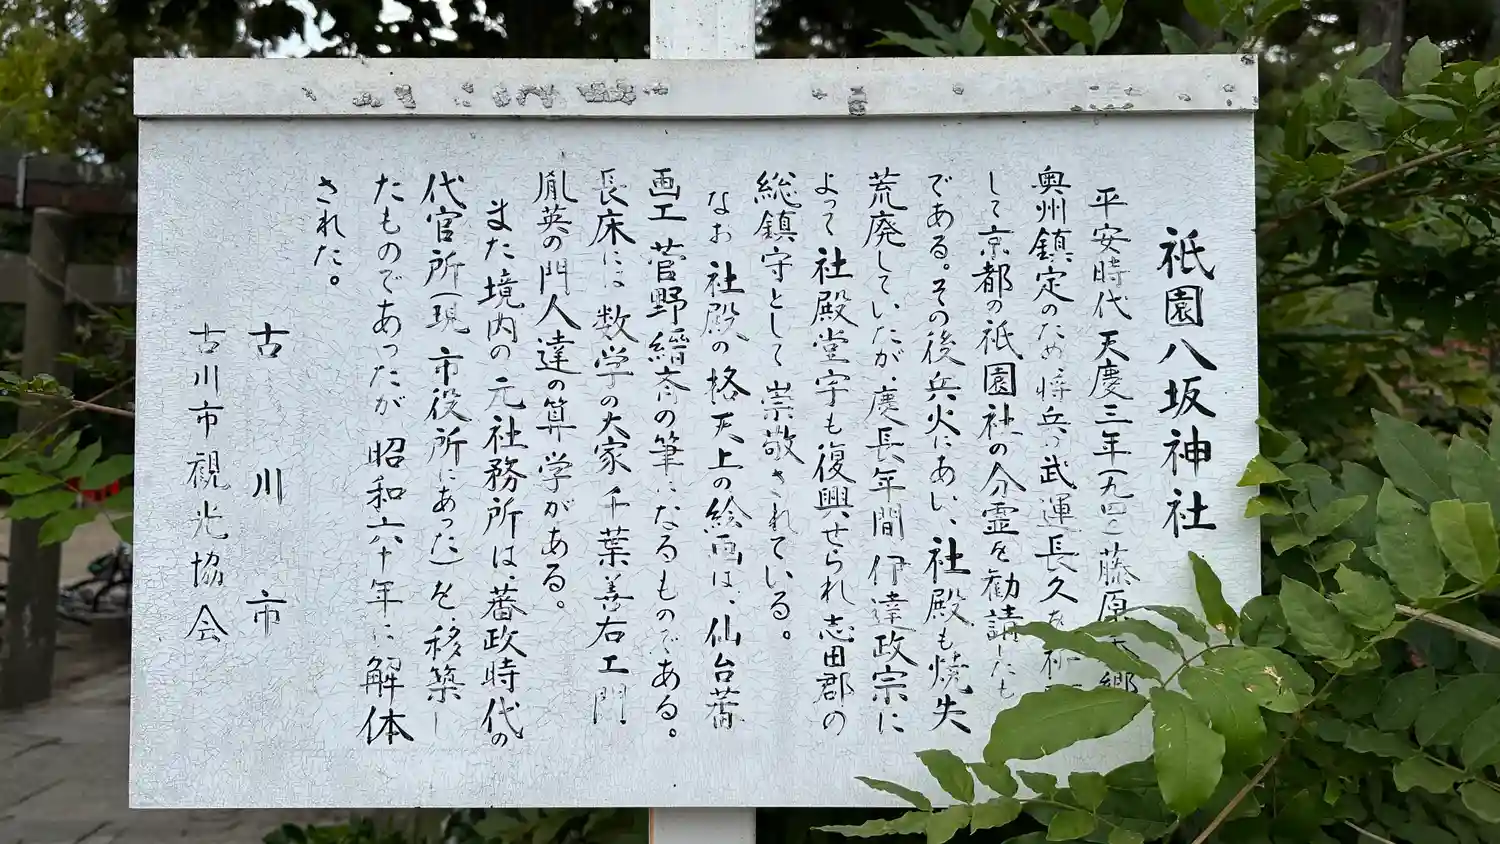 祇園八坂神社
平安時代 天慶三年(九四〇)藤原 郷
奥州鎮定のため、将兵の武運長久を祈
して京都の祇園社の分霊を勧請したも
である。その後兵火にあい、社殿も焼失
荒廃していたが、慶長年間 伊達政宗に
よって 社殿堂宇も復興せられ志田郡の
総鎮守として 崇敬されている。
なお 社殿の格天上の絵画は、仙台蕃
画工 菅野縉斎の筆になるものである。
長床には 数学の大家 千葉善右エ門
胤英の門人達の算学がある。
また境内の元社務所は、蕃政時代の
代官所(現 市役所にあった)を、移築し
たものであったが 昭和六十年に解体
された。
古川市
古川市観光協会